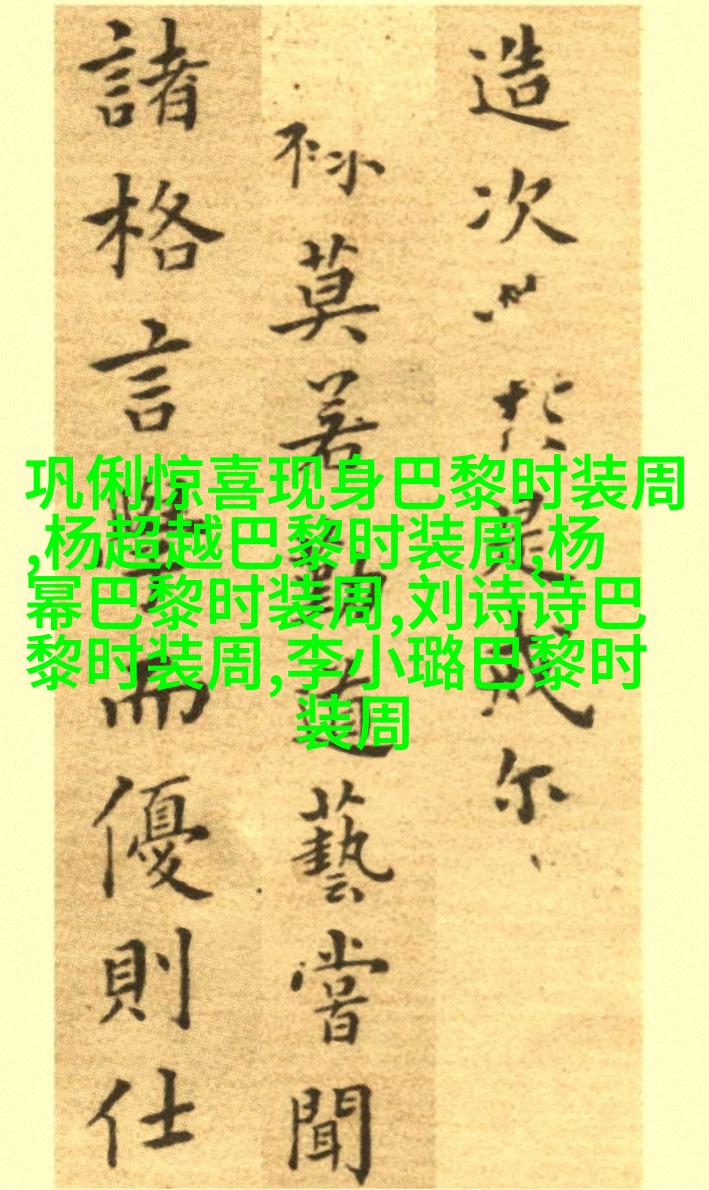 巩俐惊喜现身巴黎时装周
,杨超越巴黎时装周,杨
幂巴黎时装周,刘诗诗巴
黎时装周,李小璐巴黎时
装周
造次於是尔
莫若勤道藝嘗聞
諸格言學而優則仕